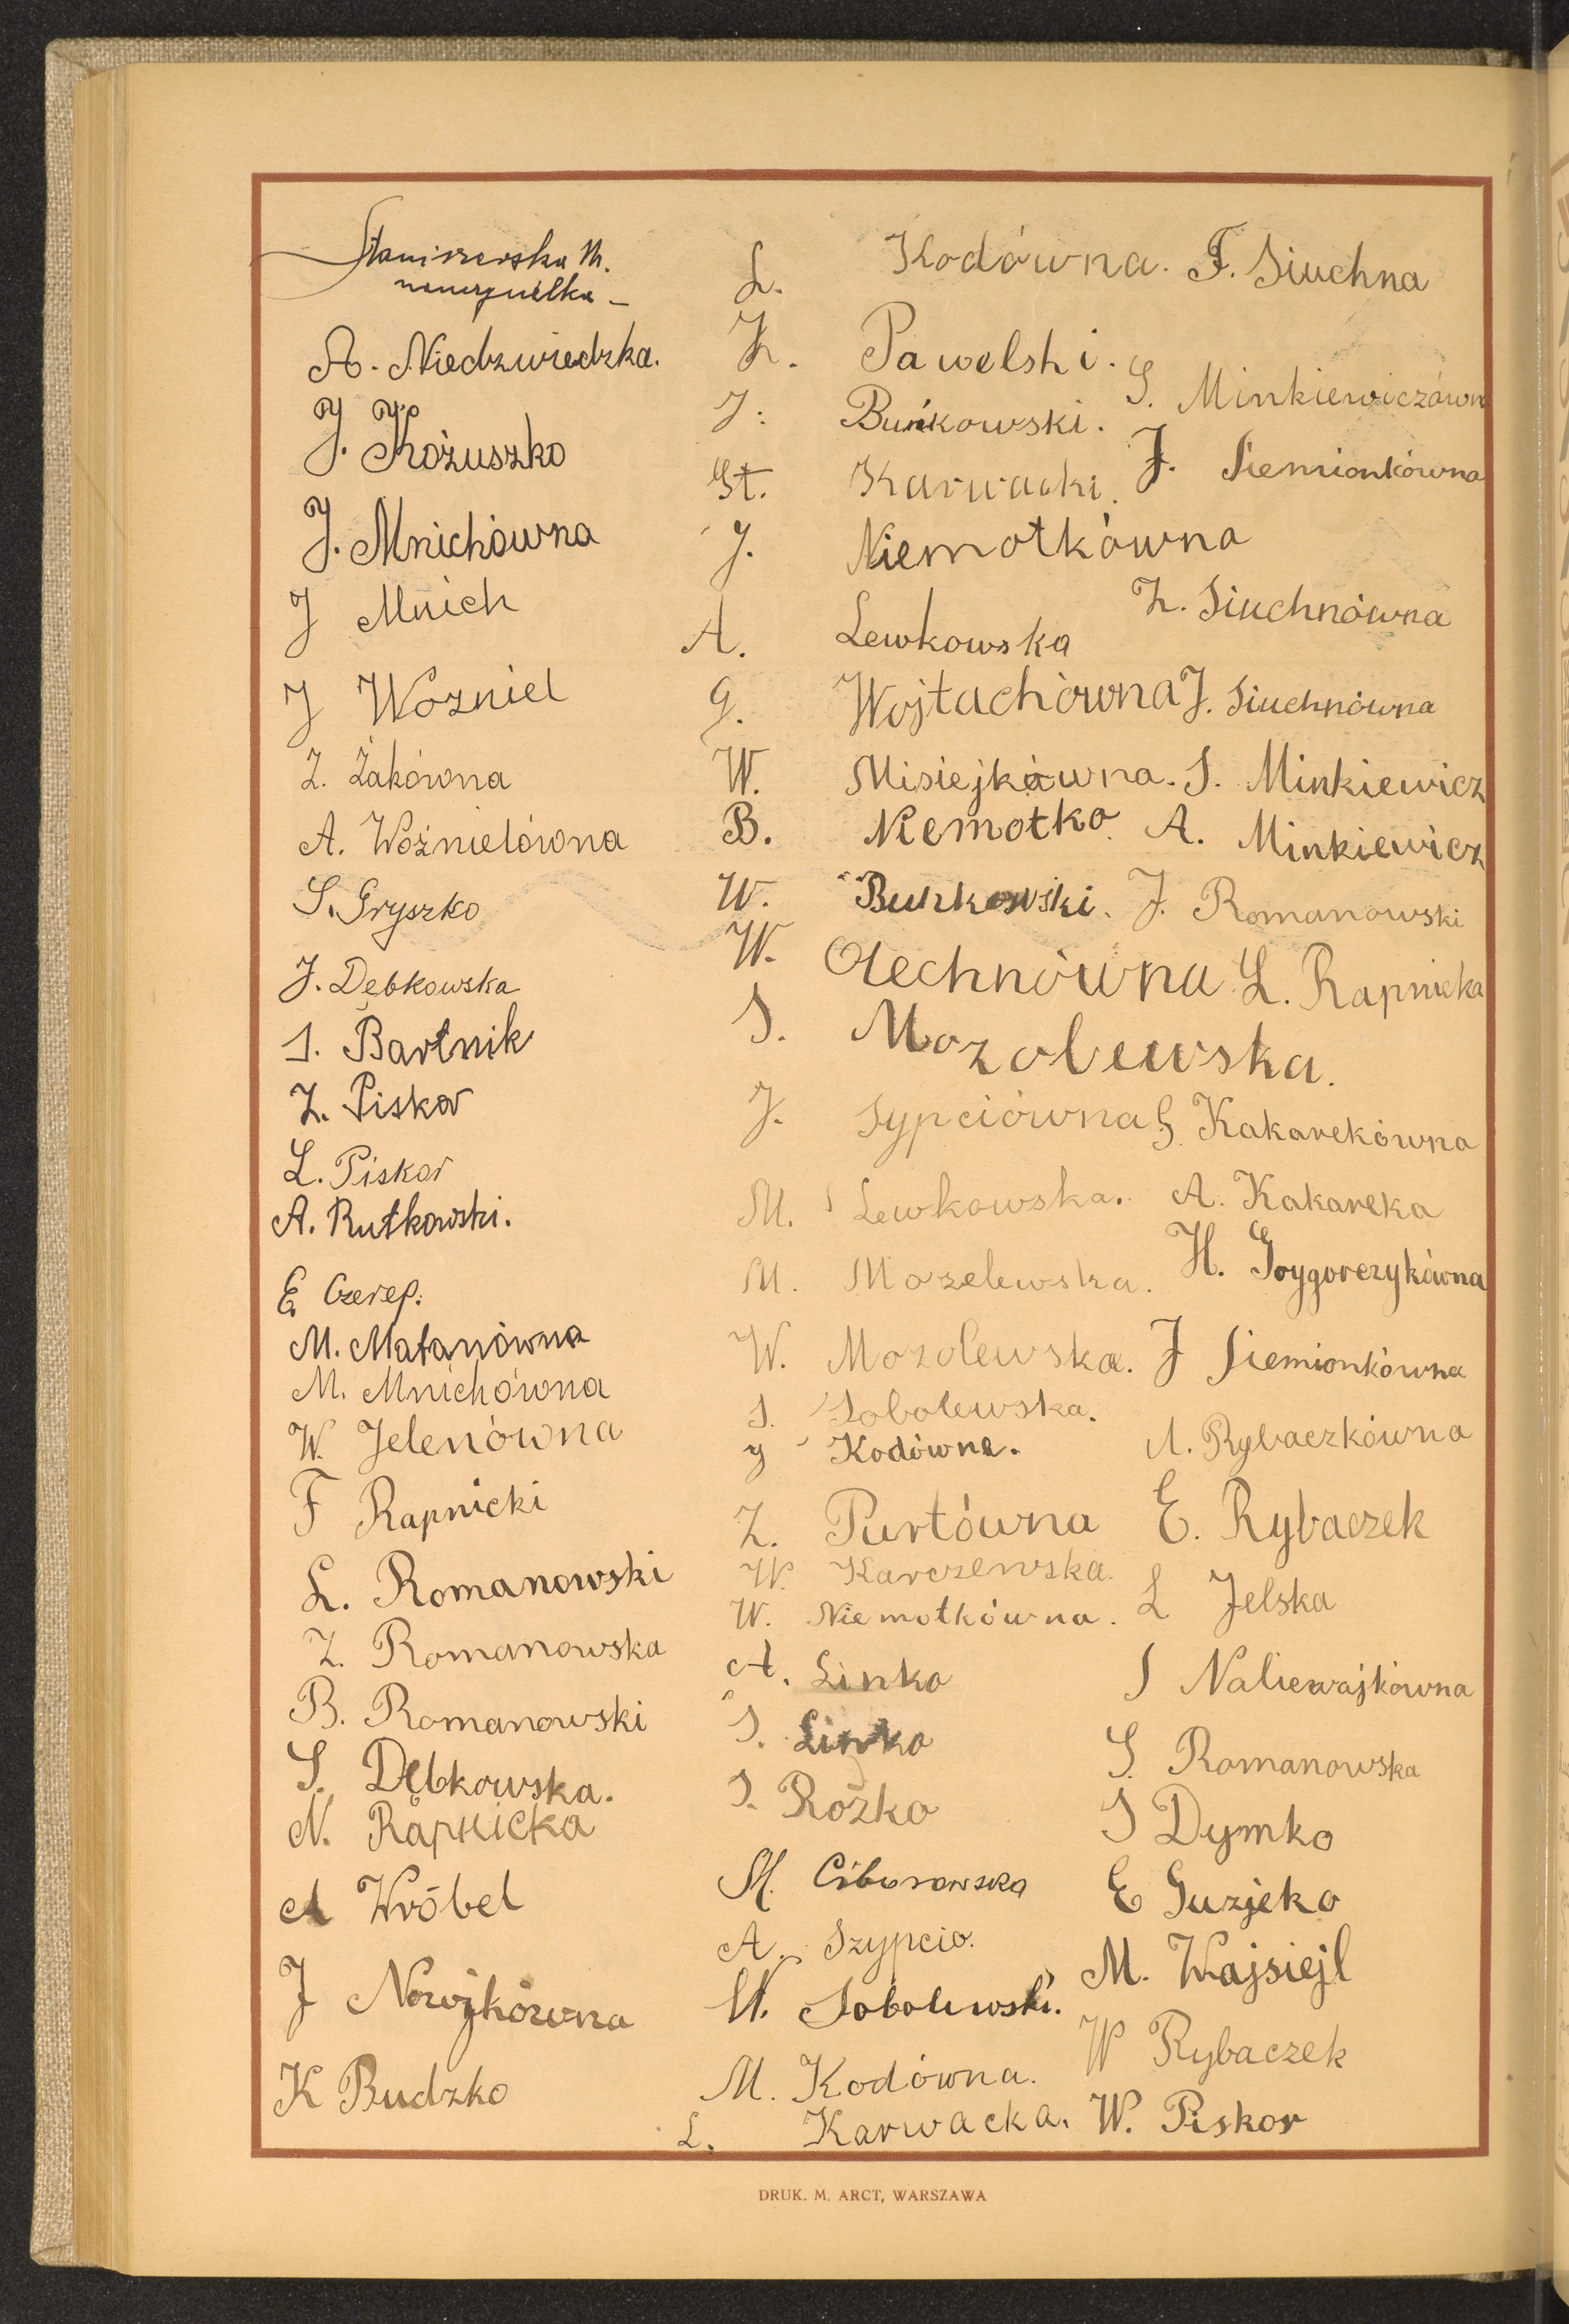 Staniszewska M.
nauczycielka –
A. Niedzwiedzka.
J. Kożuszko
J. Mnichówna
J Mnich
J Wozniel
Z. Żakówna
A. Woźnielówna
S. Gryszko
J. Dębkowska
S. Bartnik
Z. Piskor
L. Piskor
A. Rutkowski.
E Czerep.
M. Matanówna
M. Mnichówna
W. Jelenówna
F Rapnicki
L. Romanowski
Z. Romanowska
B. Romanowski
S. Dębkowska.
N. Rapnicka
A Wróbel
J Nowjkówna
K Budzko
L. Kodówna.
Z. Pawelski.
J. Buńkowski.
St. Karwacki.
J. Niemotkówna
A. Lewkowska
G. Wojtachówna
W. Misiejkówna.
B. Niemotko
W. Bunkowski.
W. Olechnówna
S. Mozolewska.
J. Sypciówna
M. Lewkowska.
M. Mozelewska.
W. Mozolewska.
S. Sobolewska.
J Kodówna.
Z. Purtówna
W. Karczewska.
W. Niemotkówna.
A. Linko
S. Linko
S. Rożko
M. Ciborowska
A. Szypcio.
W. Sobolewski.
M. Kodówna.
L. Karwacka.
F. Siuchna
S. Minkiewiczówn
J. Siemionkówna
Z. Siuchnówna
J. Siuchnówna
S. Minkiewicz
A. Minkiewicz
J. Romanowski
L. Rapnicka
G. Kakarekówna
A. Kakareka
H. Grygorczykówna
J Siemionkówna
A. Rybaczkówna
E. Rybaczek
L Jelska
S Naliewajkówna
S. Romanowska
S Dymko
E Guzjeko
M. Wajsiejl
W Rybaczek
W. Piskor
DRUK. M. ARCT, WARSZAWA